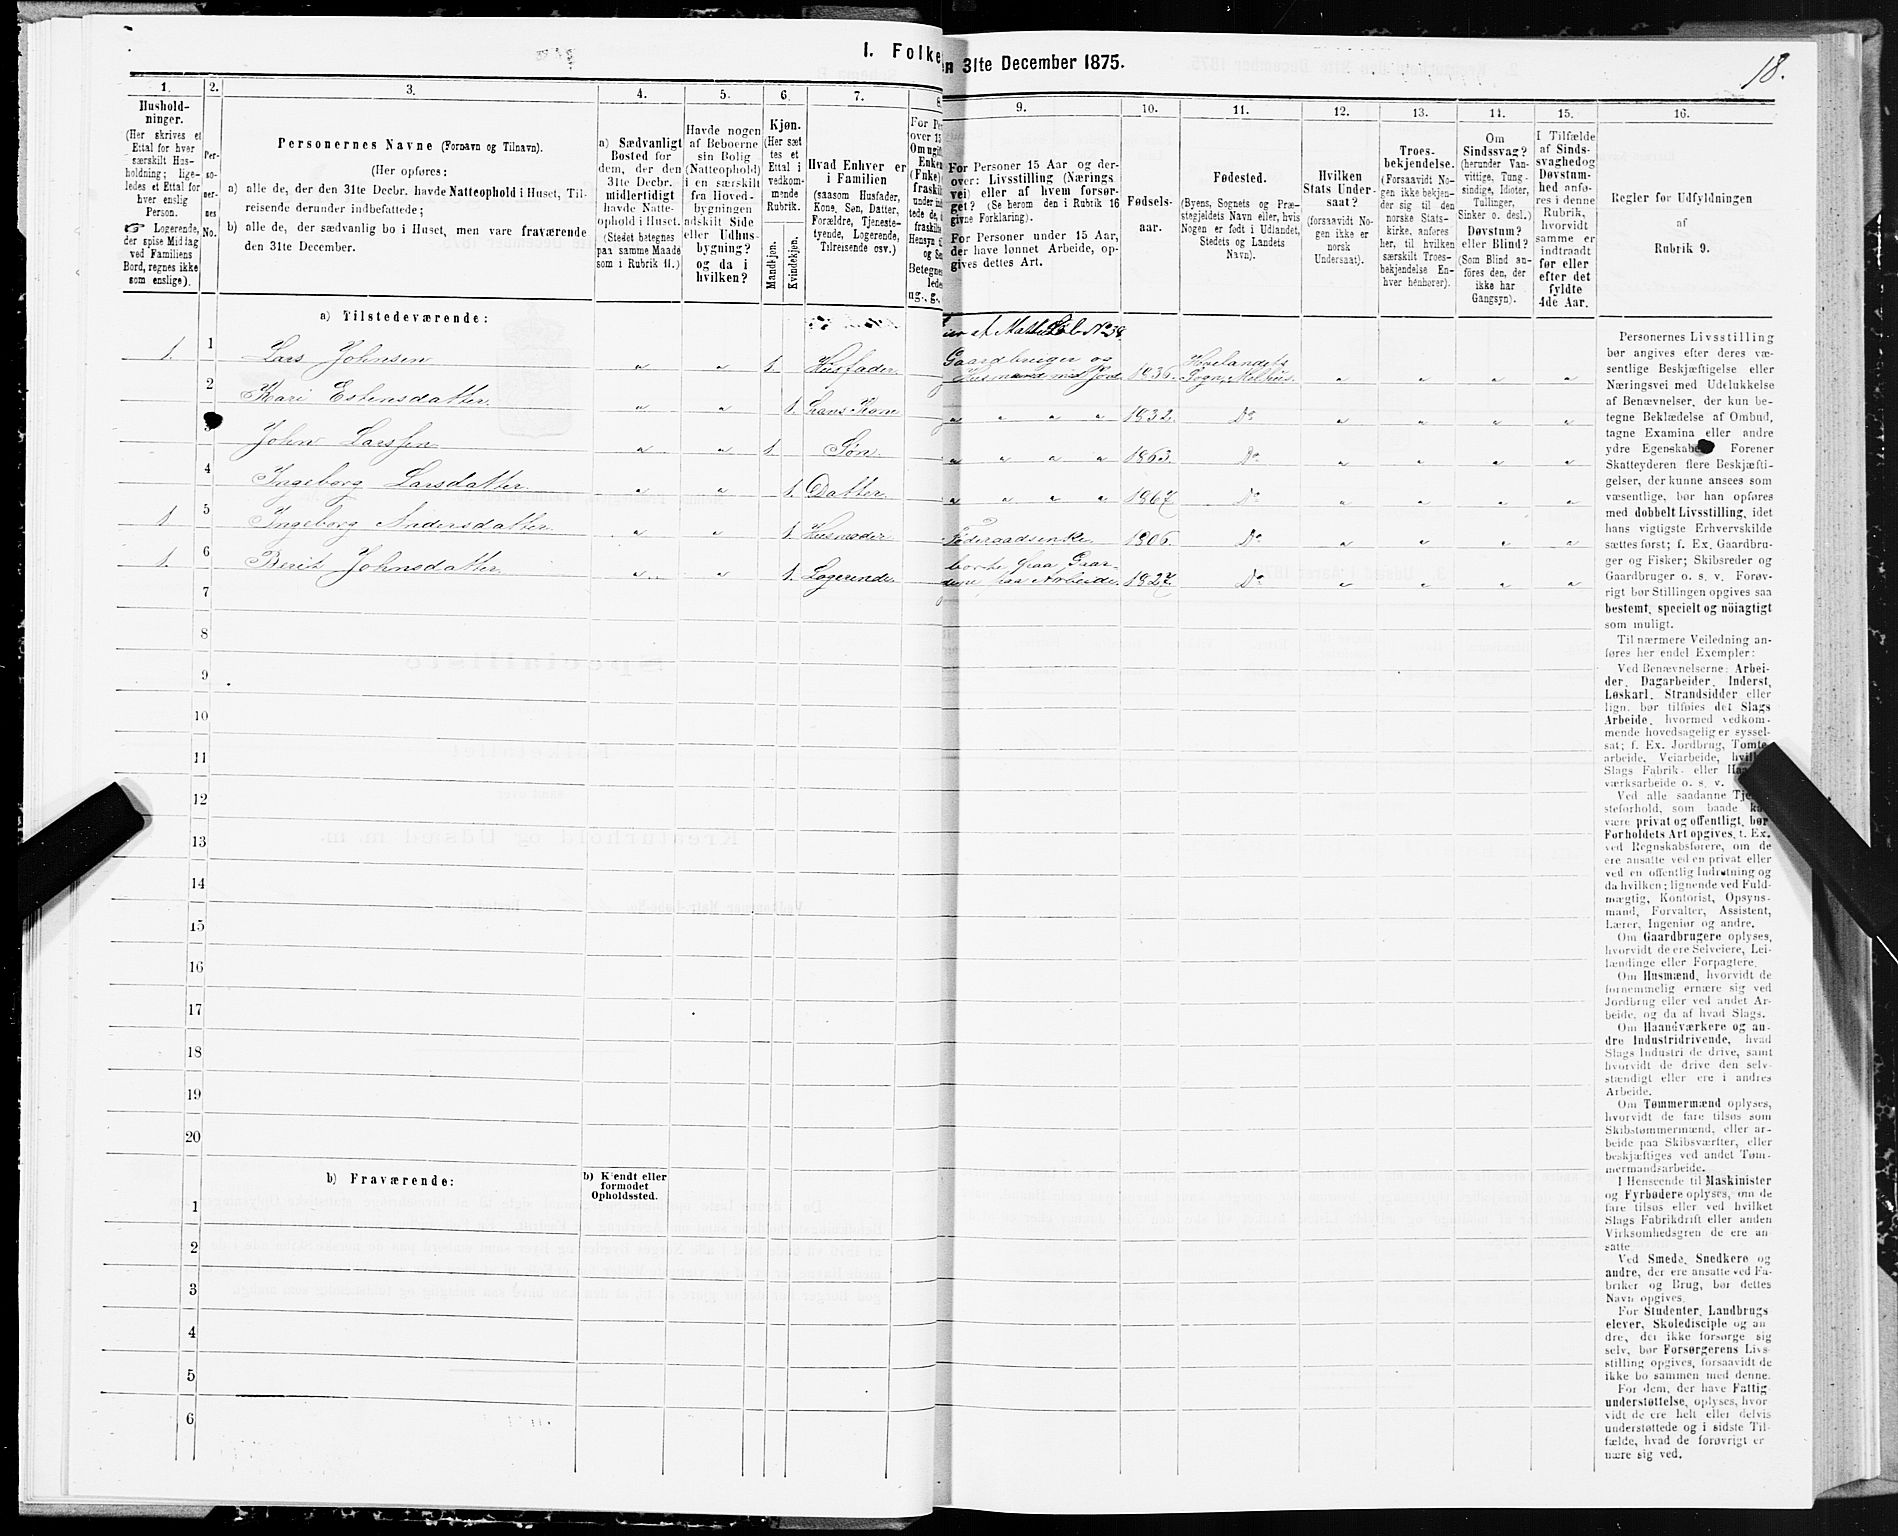 I. Folke
n 31te December 1875.
18.
1.
2.
3.
4.
5.
6.
7.
8.
9.
10.
11.
12.
13.
14.
15.
16.
Hushold-
ninger.
(Her skrives et
Ettal for hver
særskilt Hus-
holdning; lige-
ledes et Ettal for
hver enslig
Person.
☞ Logerende,
der spise Middag
ved Familiens
Bord, regnes ikke
som enslige).
Per-
so-
ner-
nes
No.
Personernes Navne (Fornavn og Tilnavn).
(Her opføres:
a) alle de, der den 31te Decbr. havde Natteophold i Huset, Til-
reisende derunder indbefattede;
b) alle de, der sædvanlig bo i Huset, men vare fraværende
den 31te December.
a) Sædvanligt
Bosted for
dem, der den
31te Decbr.
midlertidigt
havde Natte-
ophold i Huset.
(Stedet betegnes
paa samme Maade
som i Rubrik 11.)
Havde nogen
af Beboerne
sin Bolig
(Natteophold)
i en særskilt
fra Hoved-
bygningen
adskilt Side
eller Udhus-
bygning?
og da i
hvilken?
Kjøn.
(Her sæt
tes et
Ettal i
vedkom-
mende
Rubrik.
Mandkjøn.
Kvindekjøn.
Hvad Enhver er
i Familien
(saasom Husfader,
Kone, Søn, Datter,
Forældre, Tjeneste-
tyende, Logerende,
Tilreisende osv.)
For Pe
over 15
Om ugift
Enken
(Enke)
fraskilt
under ind
tede de,
fraskilte
Hensyn t
og Se
Betegne
lede
ug., g.,
For Personer 15 Aar og der-
over: Livsstilling (Nærings
vei) eller af hvem forsør-
get? (Se herom den i Rubrik 16
givne Forklaring).
For Personer under 15 Aar,
der have lønnet Arbeide, op-
gives dettes Art.
Fødsels-
aar.
Fødested.
(Byens, Sognets og Præ-
stegjeldets Navn eller, hvis
Nogen er født i Udlandet,
Stedets og Landets
Navn).
Hvilken
Stats Under-
saat?
(forsaavidt No-
gen ikke er
norsk
Undersaat).
Troes-
bekjendelse.
(Forsaavidt No-
gen ikke bekjen-
der sig til den
norske Stats-
kirke, anføres
her, til hvilken
særskilt Troes-
bekjendelse En-
hver henhører).
Om
Sindssvag?
(herunder Van-
vittige, Tung-
sindige, Idioter,
Tullinger,
Sinker o. desl.)
Døvstum?
eller Blind?
(Som Blind an-
føres den, der
ikke har
Gangsyn).
I Tilfælde
af Sinds-
svaghed og
Døvstum-
hed anfø-
res i denne
Rubrik,
hvorvidt
samme er
indtraadt
før eller
efter det
fyldte
4de Aar.
Regler for Udfyldningen
af
Rubrik 9.
a) Tilstedeværende:
1. 1 Lars Johnsen " " 1. Husfader Gaardbruger og Husmand med Jord 1836. Hølandets Sogn, Melhus. " " " "
2 Kari Estensdatter " " 1. Hans Kone " " " " 1832. Do " " " "
3 John Larssen " " 1. Søn " " " " 1863. Do " " " "
4 Ingeborg Larsdatter " " 1. Datter " " " " 1867. Do " " " "
1. 5 Ingeborg Andersdatter " " 1. Husmoder Føderaadsenke 1806. Do " " " "
1. 6 Berit Johnsdatter " " 1. Logerende borte paa Gaar- dene paa Arbeide 1827. Do " " " "
7
8
9
10
11
12
13
14
15
16
17
18
19
20
b) Fraværende:
b) Kjendt eller
formodet
Opholdssted.
1
2
3
4
5
6
Personernes Livsstilling
bør angives efter deres væ-
sentlige Beskjæftigelse eller
Næringsvei med Udelukkelse
af Benævnelser, der kun be-
tegne Beklædelse af Ombud,
tagne Examina eller andre
ydre Egenskaber. Forener
Skatteyderen flere Beskjæfti-
gelser, der kunne ansees som
væsentlige, bør han opføres
med dobbelt Livsstilling, idet
hans vigtigste Erhvervskilde
sættes først; f. Ex. Gaardbru-
ger og Fisker; Skibsreder og
Gaardbruger o. s. v. Forøv-
rigt bør Stillingen opgives saa
bestemt, specielt og nøiagtigt
som muligt.
Til nærmere Veiledning an-
føres her endel Exempler:
Ved Benævnelserne: Arbei-
der, Dagarbeider, Inderst,
Løskarl, Strandsidder eller
lign. bør tilføies det Slags
Arbeide, hvormed vedkom-
mende hovedsagelig er syssel-
sat; f. Ex. Jordbrug, Tømte-
arbeide, Veiarbeide, hvil
Slags Fabrik- eller Ha
værksarbeide o. s. v.
Ved alle saadanne Tje
steforhold, som baade k
være privat og offentligt, bør
Forholdets Art opgives, t. Ex.
ved Regnskabsførere, om de
ere ansatte ved en privat eller
ved en offentlig Indretning og
da hvilken; lignende ved Fuld-
mægtig, Kontorist, Opsyns-
mand, Forvalter, Assistent,
Lærer, Ingeniør og andre.
Om Gaardbrugere oplyses,
hvorvidt de ere Selveiere, Lei-
lændinge eller Forpagtere.
Om Husmænd, hvorvidt de
fornemmelig ernære sig ved
Jordbrug eller ved andet Ar-
beide, og da af hvad Slags.
Om Haandværkere og an-
dre Industridrivende, hvad
Slags Industri de drive, samt
hvorvidt de drive den selv-
stændigt eller ere i andres
Arbeide.
Om Tømmermænd oplyses,
hvorvidt de fare tilsøs som
Skibstømmermænd, eller ar-
beide paa Skibsværfter, eller
beskjæftiges ved andet Tøm-
mermandsarbeide.
I Henseende til Maskinister
og Fyrbødere oplyses, om de
fare tilsøs eller ved hvilket
Slags Fabrikdrift eller anden
Virksomhedsgren de ere an-
satte
Ved Smede, Snedkere og
andre, der ere ansatte ved Fa-
briker og Brug, bør dettes
Navn opgives.
For Studenter, Landbrugs
elever, Skoledisciple og an
dre, der ikke forsørge sig
selv, bør Forsørgerens Livs-
stilling opgives, forsaavidt de
ikke bo sammen med denne.
For dem, der have Fattig
understøttelse, oplyses, hvor
vidt de ere helt eller delvis
understøttede og i sidste Til-
fælde, hvad de forøvrigt er
nære sig ved.